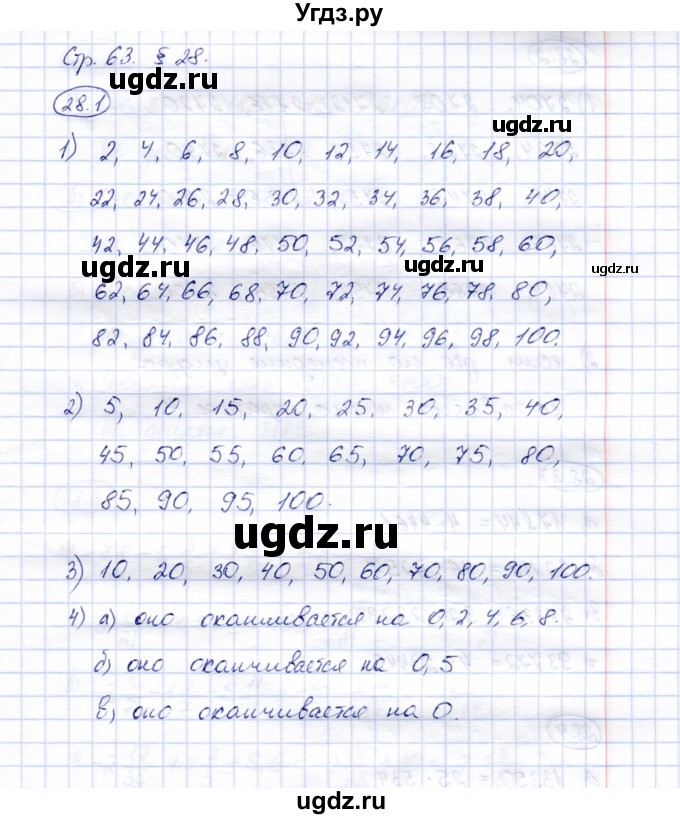 Угдз.ру
Стр. 63. § 28.
ugdz.ru
28.1
ugdz.ru
1) 2, 4, 6, 8, 10, 12, 14, 16, 18, 20,
22, 24, 26, 28, 30, 32, 34, 36, 38, 40,
42, 44, 46, 48, 50, 52, 54, 56, 58, 60,
ugdz.ru ugdz.ru ugdz.ru
62, 64, 66, 68, 70, 72, 74, 76, 78, 80,
82, 84, 86, 88, 90, 92, 94, 96, 98, 100.
2) 5, 10, 15, 20, 25, 30, 35, 40,
45, 50, 55, 60, 65, 70, 75, 80,
85, 90, 95, 100.
ugdz.ru
3) 10, 20, 30, 40, 50, 60, 70, 80, 90, 100.
4) а) оно оканчивается на 0, 2, 4, 6, 8.
б) оно оканчивается на 0, 5
в) оно оканчивается на 0.
ugdz.ru